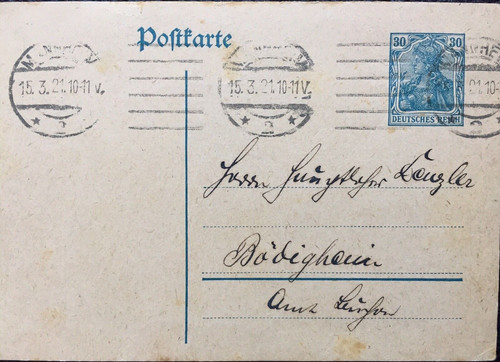 Postkarte
MANNHEIM
15.3.21.10-11 V.
* 2 *
MANNHEIM
15.3.21.10-11 V.
* 2 *
30 30
DEUTSCHES REICH
Herrn Hauptlehrer
Bödigheim
Amt Buchen